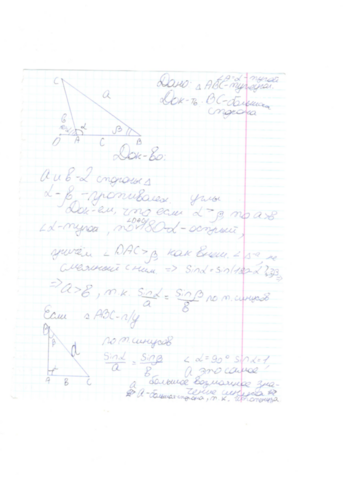 ∠A-α-тупой
Дано △ABC-тупоугол.
Док-ть BC-большая
сторона
C
a
b
α
β
D A c B
Док-во.
a и b-2 стороны △
α-β-противолеж углы
Док-ем, что если α>β то a>b
∠α-тупой, 180-α-острый,
причём ∠DAC>β как внешн.
смежный с ним => sinα=sin(180-α)
=> a>b, т.к. sinα/a = sinβ/b по т. синусов
Если △ABC-п/у
по т. синусов
sinα/a = sinβ/b ∠α=90° sinα=1,
а это самое
большое возможное зна-
чение синуса =>
a-большая сторона, т.к.
B
a
A b C